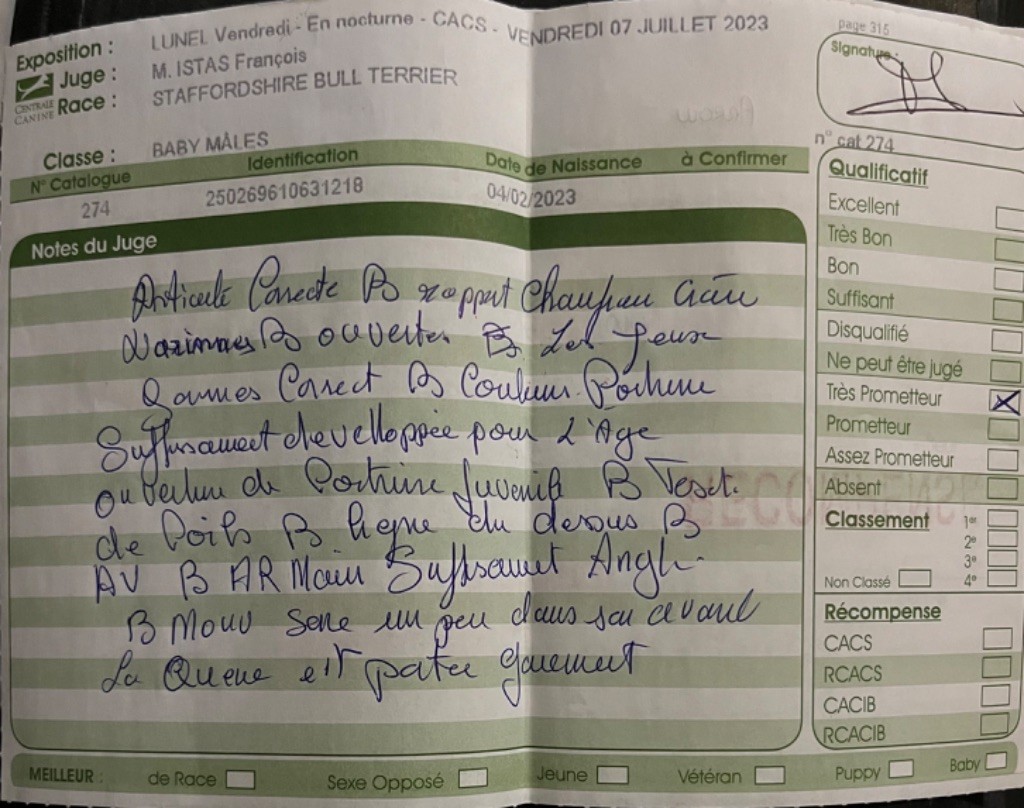 Exposition : LUNEL Vendredi - En nocturne - CACS - VENDREDI 07 JUILLET 2023
Juge : M. ISTAS François
CENTRALE CANINE
Race : STAFFORDSHIRE BULL TERRIER
Classe : BABY MÂLES
N° Catalogue Identification Date de Naissance à Confirmer
274 250269610631218 04/02/2023
Notes du Juge
Articulé Correcte B rapport Chanfrein Crâne
B ouvertes B Les yeux
Correct B Couleur Poitrine
Suffisament developpée pour l'Age
ouverture de Poitrine Juvenil B Text.
de Poils B ligne du dessus B
AV B AR Main Suffisament Angl.
B Mouv Serre un peu dans son avant
La Queue est portée gaiement
page 315
Signature :
n° cat 274
Qualificatif
Excellent
Très Bon
Bon
Suffisant
Disqualifié
Ne peut être jugé
Très Prometteur X
Prometteur
Assez Prometteur
Absent
Classement 1er
2e
3e
Non Classé 4e
Récompense
CACS
RCACS
CACIB
RCACIB
MEILLEUR : de Race Sexe Opposé Jeune Vétéran Puppy Baby